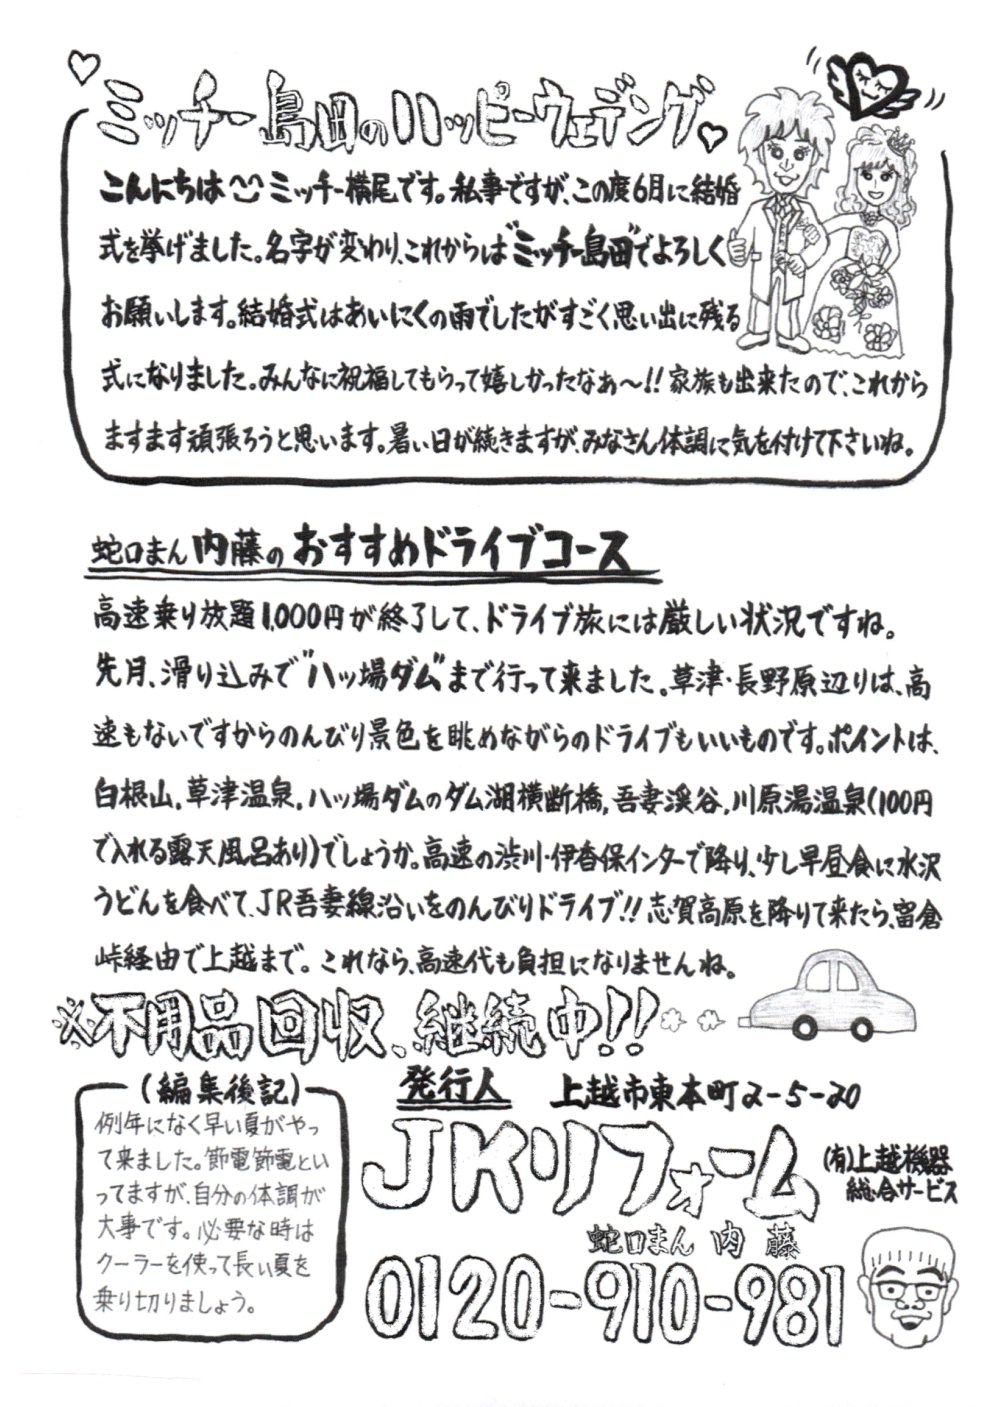 ミッチー島田のハッピーウェディング
こんにちは^^ミッチー横尾です。私事ですが、この度6月に結婚
式を挙げました。名字が変わり、これからは"ミッチー島田"でよろしく
お願いします。結婚式はあいにくの雨でしたがすごく思い出に残る
式になりました。みんなに祝福してもらって嬉しかったなぁ〜!! 家族も出来たので、これから
ますます頑張ろうと思います。暑い日が続きますが、みなさん体調に気を付けて下さいね。
蛇口まん内藤のおすすめドライブコース
高速乗り放題1,000円が終了して、ドライブ旅には厳しい状況ですね。
先月、滑り込みで"八ッ場ダム"まで行って来ました。草津・長野原辺りは、高
速もないですからのんびり景色を眺めながらのドライブもいいものです。ポイントは、
白根山,草津温泉,八ッ場ダムのダム湖横断橋,吾妻渓谷,川原湯温泉(100円
で入れる露天風呂あり)でしょうか。高速の渋川・伊香保インターで降り、少し早昼食に水沢
うどんを食べて、JR吾妻線沿いをのんびりドライブ!! 志賀高原を降りて来たら、富倉
峠経由で上越まで。これなら、高速代も負担になりませんね。
※不用品回収、継続中!!
(編集後記)
例年になく早い夏がやっ
て来ました。節電節電とい
ってますが、自分の体調が
大事です。必要な時は
クーラーを使って長い夏を
乗り切りましょう。
発行人 上越市東本町2-5-20
JKリフォーム
(有)上越機器
総合サービス
蛇口まん 内藤
0120-910-981